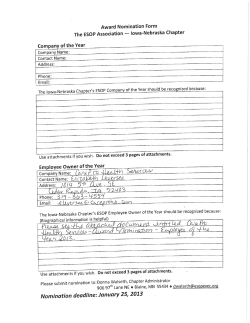 Award Nomination Form
The ESOP Association — Iowa-Nebraska Chapter
Company of the Year
Company Name:
Contact Name:
Address:
Phone:
Email:
The Iowa-Nebraska Chapter's ESOP Company of the Year should be recognized because:
Use attachments if you wish. Do not exceed 3 pages of attachments.
Employee Owner of the Year
Company Name: Health Services
Contact Name: Elizabeth
Address: 1814 5th Ave. St
Cedar Rapids, IA 52403
Phone: 319-363-4554
Email:
The Iowa Nebraska Chapter's ESOP Employee Owner of the Year should be recognized because:
(Biographical information is helpful)
Please see the attached document entitled
Health Services - Award Nomination - Employee of the
Year 2013.
Use attachments if you wish. Do not exceed 3 pages of attachments.
Please submit nomination to Donna Walseth, Chapter Administrator
906 97th Lane NE • Blaine, MN 55434 •
Nomination deadline: January 25, 2013